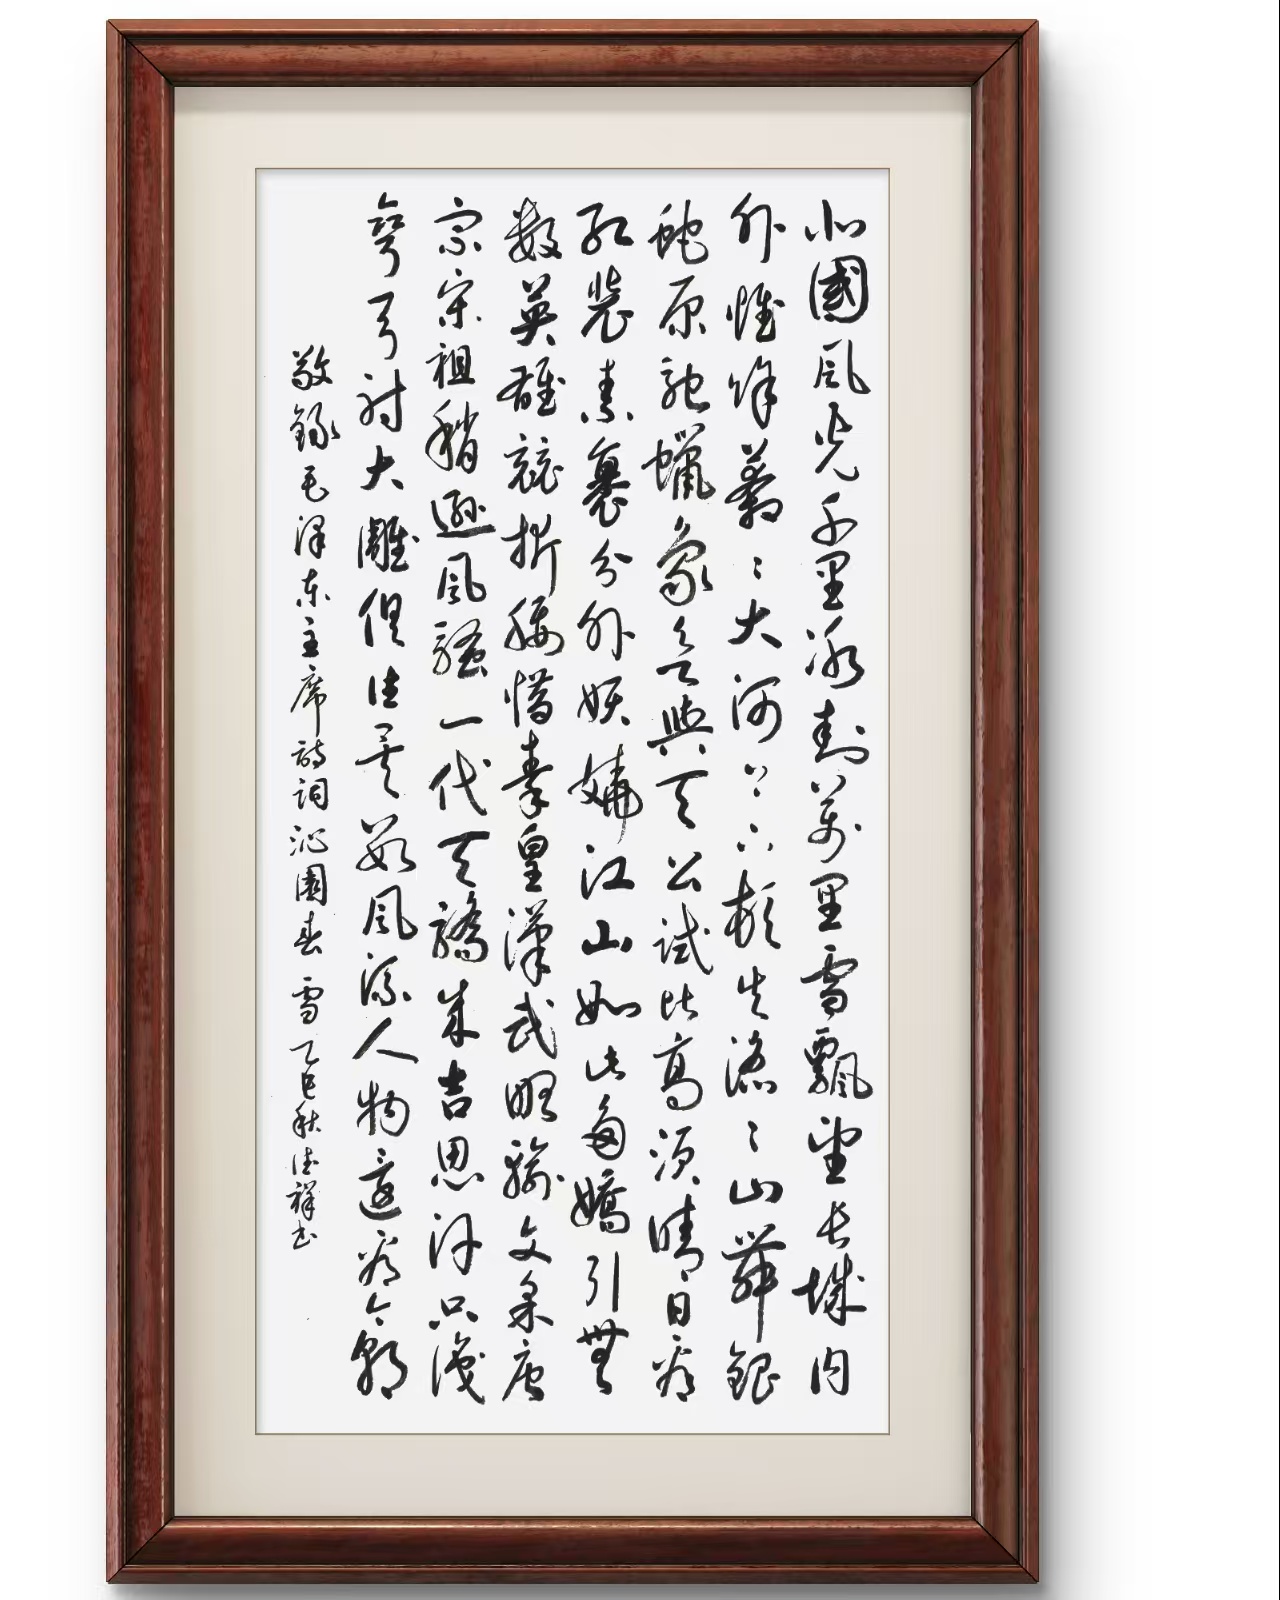 北國風光千里冰封萬里雪飄望長城内
外惟餘莽〻大河上下頓失滔〻山舞銀
蛇原馳蠟象欲與天公試比高須晴日看
红装素裹分外妖嬈江山如此多嬌引無
数英雄競折腰惜秦皇漢武略輸文采唐
宗宋祖稍遜風騷一代天驕成吉思汗只識
彎弓射大雕俱往矣数風流人物還看今朝
敬錄毛泽东主席詩词沁園春 雪 乙巳秋德祥书